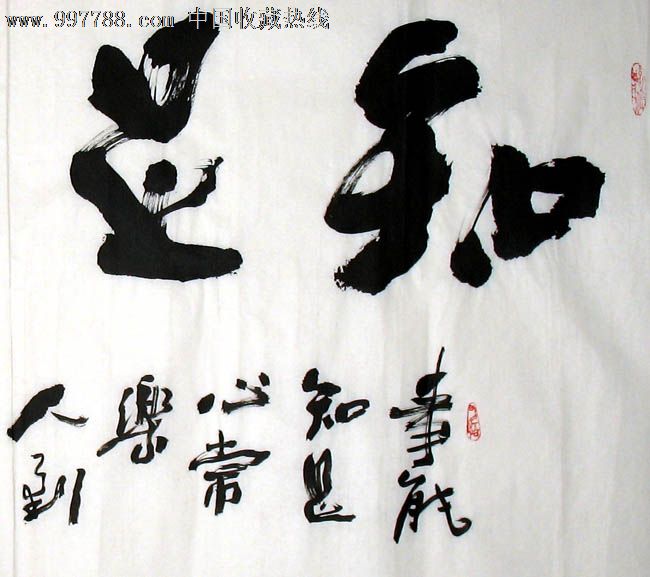 www.997788.com 中国收藏热线
知足
事能
知足
心常
樂
人到